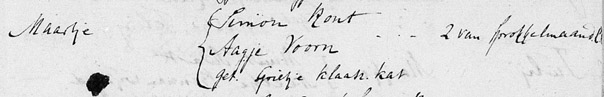 Maartje
Simon Kout
Aagje Voorn . . . 2 van sprokkelmaand
get. Grietje Klaas. kat